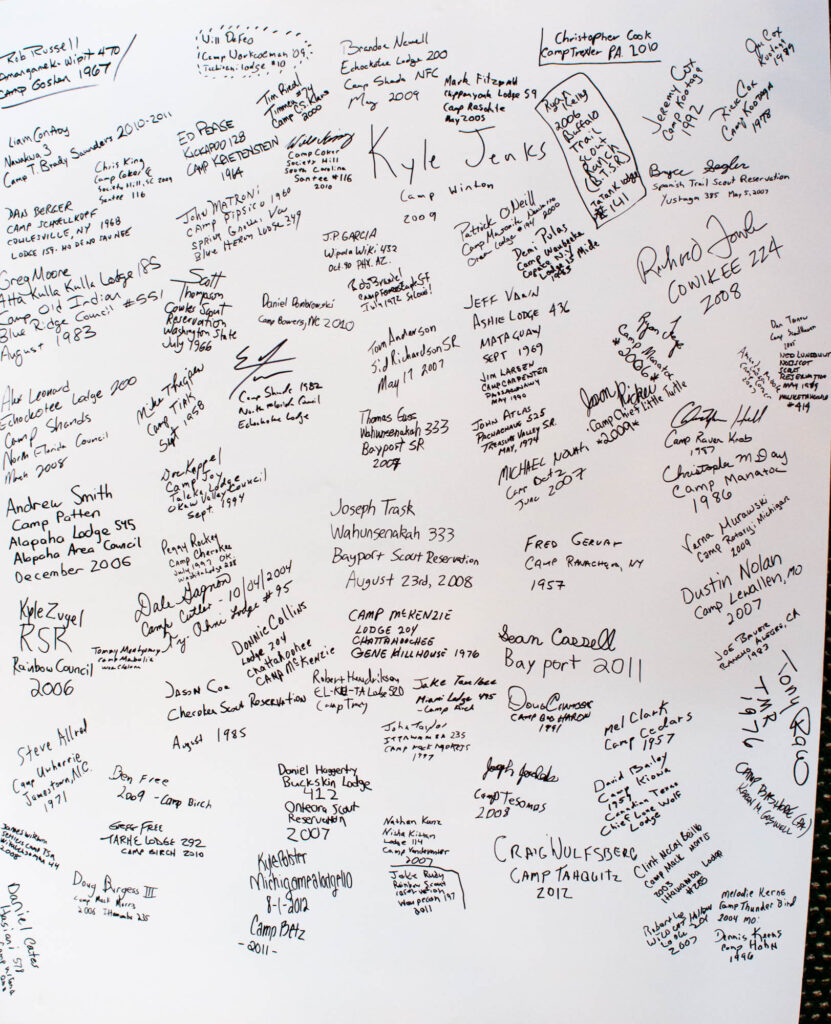 Rob Russell
Amangamek-Wipit 470
Camp Goslan 1967
Will DeFeo
Camp Workcoeman '09
Tschitani Lodge #10
Brandon Newell
Echockotee Lodge 200
Camp Shands NFC
May 2009
Christopher Cook
Camp Trexler PA. 2010
Jim Cox
Kootaga
1989
Jeremy Cox
Camp Kootaga
1992
Rick Cox
Camp Kootaga
1978
Tim Riedl
Timmeu #74
Camp C.S. Klaus
2000
Mark Fitzgerald
Chippanyonk Lodge 59
Camp Rasohte
May 2005
Ryan
Kelly
2006
Buffalo
Trail
Scout
Ranch
(BTSR)
Tatanka Lodge
#141
Liam Conboy
Nawakwa 3
Camp T. Brady Saunders 2010-2011
ED PEASE
KICKAPOO 128
CAMP KRIETENSTEIN
1964
Camp Coker
Society Hill
South Carolina
Santee #116
2010
Chris King
Camp Coker &
Society Hill, SC 2009
Santee 116
Kyle Jenks
Camp Winton
2009
Bryce Segler
Spanish Trail Scout Reservation
Yustaga 385 May 5, 2007
DAN BERGER
CAMP SCHOELLKOPF
COWLESVILLE, NY 1968
LODGE 159- HO DE NO SAU NEE
John MaTRONi
CAMP PIPSICO 1960
SPRING GROVE Va
Blue Heron Lodge 249
J.P. GARCIA
Wipala Wiki 432
Oct. 90 PHX. AZ.
Patrick O'Neill
Camp Marriott, Navarro
2000
Demi Pulas
Camp Waubeeka
Copake NY
1983
Richard Fowler
COWIKEE 224
2008
Greg Moore
Atta Kulla Kulla Lodge 185
Camp Old Indian
Blue Ridge Council #551
August 1983
Scott
Thompson
Cowles Scout
Reservation
Washington State
July 1966
Daniel Dombrowski
Camp Bowers, NC 2010
July 1972
JEFF VARIN
ASHIE LODGE 436
MATAGUAY
SEPT 1969
Tom Anderson
Sid Richardson SR
May 17 2007
JIM LARSEN
CAMP CARPENTER
PASSACONAWAY
MAY 1990
Ryan J
Camp Manatoc
*2006*
Dan Torru
2005
NED LUNDQUIST
NOBSCOT
SCOUT
RESERVATION
MAY 1985
#414
Alex Leonard
Echockotee Lodge 200
Camp Shands
North Florida Council
March 2008
Mike Thogper
Camp Tink
Sept 1958
Camp Shands 1982
North Florida Council
Echockotee Lodge
Thomas Goss
Wahunsenakah 333
Bayport SR
2007
JOHN ATLAS
PACHACHAUG 525
TREASURE VALLEY SR.
MAY, 1974
Jason Ricker
Camp Chief Little Turtle
*2009*
Christopher Hull
Camp Raven Knob
1987
MICHAEL NOVATH
Camp Betz
June 2007
Christopher M Day
Camp Manatoc
1986
Andrew Smith
Camp Patten
Alapaha Lodge 545
Alapaha Area Council
December 2006
Dre Kappel
Camp Joy
Taleka Lodge
Okaw Valley Council
Sept. 1994
Peggy Rockey
Camp Cherokee
July 1997 OK.
Washita Lodge 288
Joseph Trask
Wahunsenakah 333
Bayport Scout Reservation
August 23rd, 2008
FRED GERVAT
CAMP RANACHQUA, NY
1957
Verna Murawski
Camp Rotary: Michigan
2009
Dustin Nolan
Camp Lewallen, MO
2007
Dale Gagnon
Camp Cutler - 10/04/2004
Ty-Ohni Lodge #95
Kyle Zugel
RSR
Rainbow Council
2006
Tommy Montgomery
Camp Mabulia
Donnie Collins
Lodge 204
Chattahoochee
CAMP McKenzie
CAMP MCKENZIE
LODGE 204
CHATTAHOOCHEE
GENE HILLHOUSE 1976
Sean Cassell
Bayport 2011
JOE BAUER
RANCHO ALEGRE, CA
1983
Tony Raw
TMR
1976
Jason Coe
Cherokee Scout Reservation
August 1985
Robert Hendrikson
EL-KU-TA Lodge 520
Camp Tracy
Jake Tanlbee
Miami Lodge 495
-Camp Birch
Doug Clumser
CAMP BUD HARON
1991
Mel Clark
Camp Cedars
1957
Steve Allred
Camp Uwharrie
Jamestown, N.C.
1971
John Taylor
ITTAWAMBA 235
Camp Mack Morris
1997
CAMP BASHORE (PA)
KAREN M. GOSNELL
Ben Free
2009 - Camp Birch
Daniel Haggerty
Buckskin Lodge
412
Onteora Scout
Reservation
2007
Camp Tesomas
2008
David Bailey
Camp Kiowa
1954
Canadian Texas
Chief Lone Wolf
Lodge
James Wilburn
2008
GREG FREE
TARHE LODGE 292
CAMP BIRCH 2010
Nathan Kunz
Nisha Kittan
Lodge 114
Camp Vandeventer
2007
CRAIG WULFSBERG
CAMP TAHQUITZ
2012
Clint McCol Beillis
Camp Mack Morris
2003
Ittawamba Lodge
#235
Doug Burgess III
Camp Mack Morris
2006 Ittawamba 235
Kyle Polster
Michigamea
8-1-2012
Camp Betz
-2011-
Jake Rudy
Rainbow Scout
Reservation
Waupecan 197
2011
Melodie Kerns
Camp Thunder Bird
2004 MO.
Robert Lee
Wild Cat Hollow
Lodge 201
2007
Dennis Kerns
Camp HOHN
1996
Daniel Cater
Hasinai 578